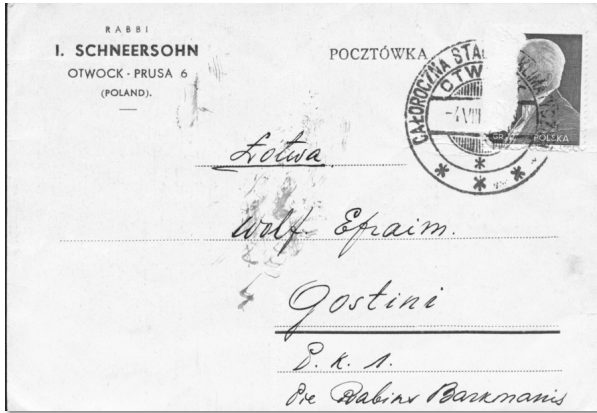 RABBI
I. SCHNEERSOHN
OTWOCK - PRUSA 6
(POLAND).
POCZTÓWKA
CAŁOROCZNA STA
OTW
-4 VIII
GR
POLSKA
Łotwa
Wolf. Efraim.
Gostini
P. K. 1.
Pie Rabins Barkmanis